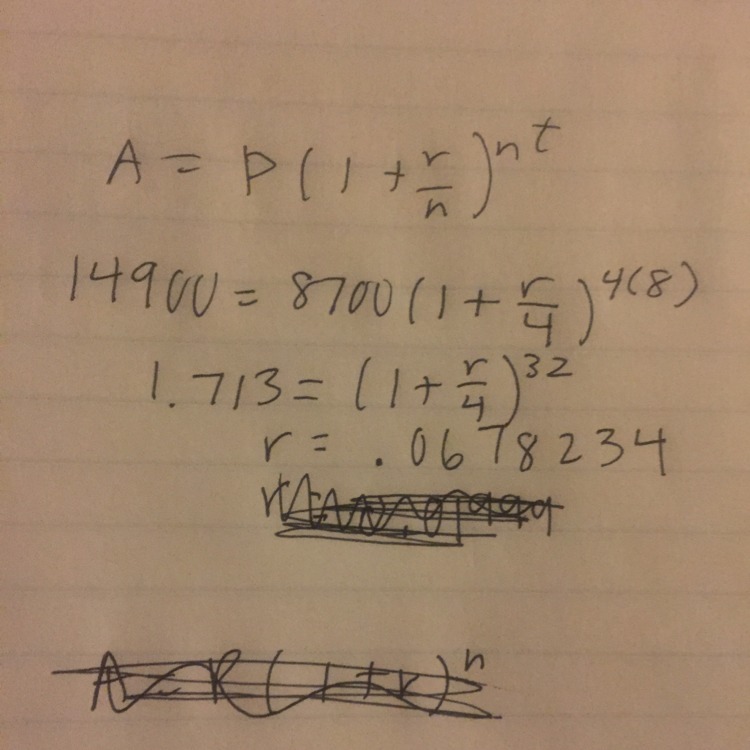 A = P(1 + r/n)^nt
14900 = 8700(1 + r/4)^4(8)
1.713 = (1 + r/4)^32
r = .0678234
A = P(1+r)^n